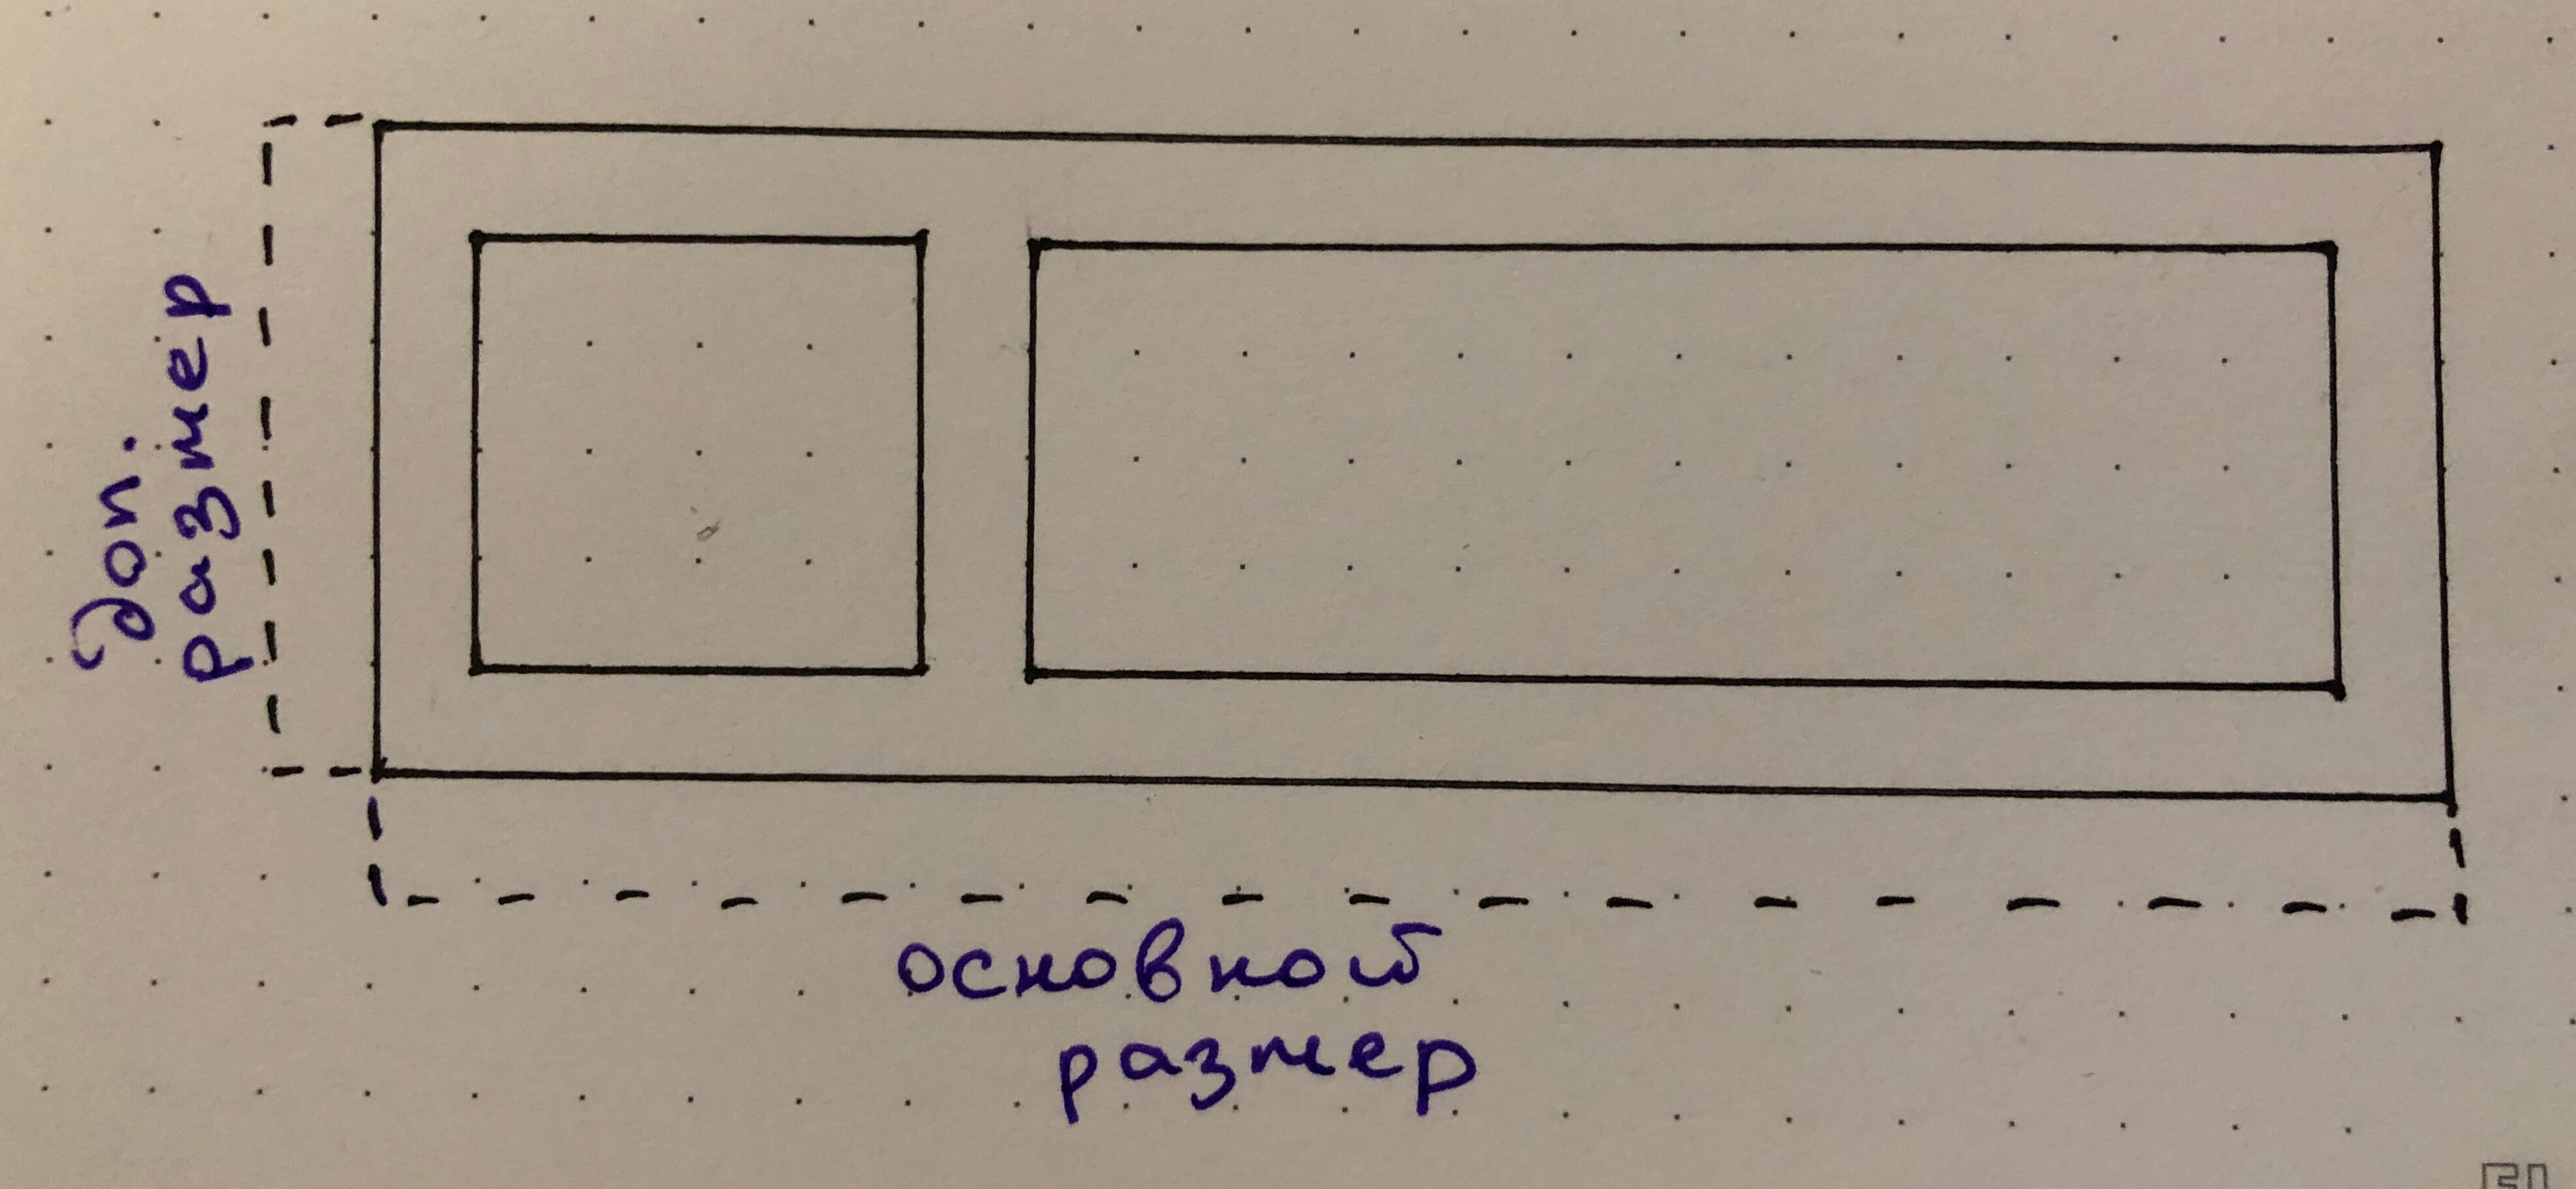 доп.
размер
основной
размер